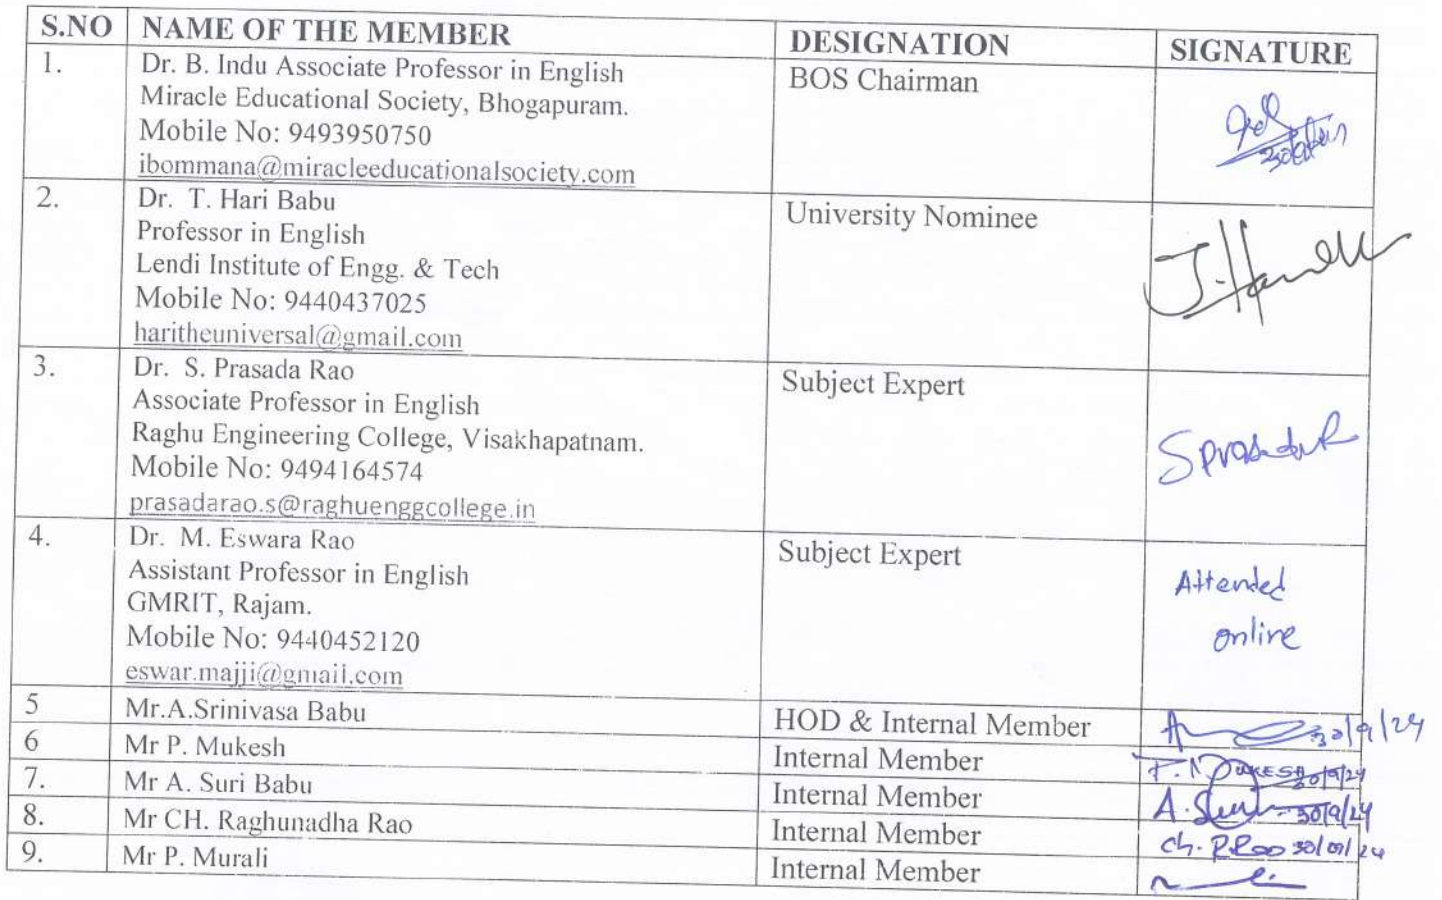 S.NO NAME OF THE MEMBER DESIGNATION SIGNATURE
1. Dr. B. Indu Associate Professor in English BOS Chairman
Miracle Educational Society, Bhogapuram.
Mobile No: 9493950750
ibommana@miracleeducationalsociety.com
2. Dr. T. Hari Babu University Nominee
Professor in English
Lendi Institute of Engg. & Tech
Mobile No: 9440437025
haritheuniversal@gmail.com
3. Dr. S. Prasada Rao Subject Expert
Associate Professor in English
Raghu Engineering College, Visakhapatnam.
Mobile No: 9494164574
prasadarao.s@raghuenggcollege.in
4. Dr. M. Eswara Rao Subject Expert
Assistant Professor in English
GMRIT, Rajam.
Mobile No: 9440452120
eswar.majji@gmail.com
Attended
online
5 Mr.A.Srinivasa Babu HOD & Internal Member 30/9/24
6 Mr P. Mukesh Internal Member P. MUKESH 30/9/24
7. Mr A. Suri Babu Internal Member 30/9/24
8. Mr CH. Raghunadha Rao Internal Member Ch. R.Rao 30/09/24
9. Mr P. Murali Internal Member